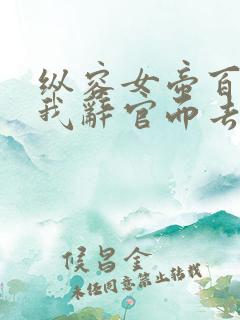 纵容女帝百
我辞官而去
侯昌金
未经同意禁止转载